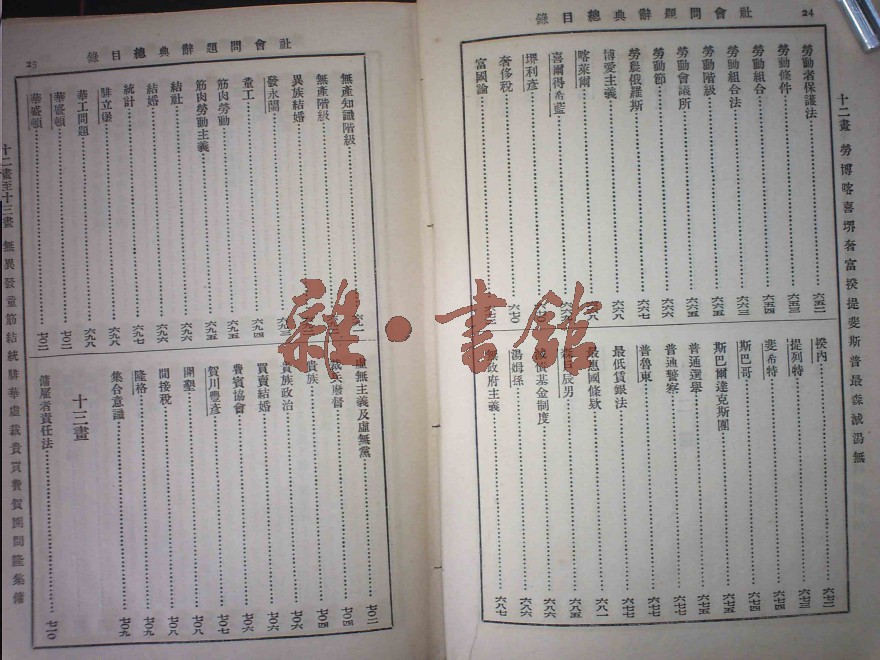 社會問題辭典總目錄
24
十二畫 勞博喀喜堺奢富揆提斐斯普最森減湯無
勞動者保護法 六五二
勞動條件 六五三
勞動組合 六五四
勞動組合法 六六三
勞動階級 六六五
勞動會議所 六六六
勞動節 六六六
勞農俄羅斯 六六七
博愛主義 六六八
喀萊爾
喜爾得布藍
堺利彥
奢侈稅 六七〇
富國論
揆內 六七二
提列特 六七三
斐希特 六七四
斯巴哥 六七四
斯巴爾達克斯團 六七五
普通選舉 六七五
普通警察 六七七
普魯東 六七七
最低賃銀法 六七七
最惠國條款 六八一
森戶辰男 六八五
減債基金制度 六八六
湯姆孫 六八六
無政府主義 六八七
社會問題辭典總目錄
25
無產知識階級
無產階級
異族結婚
發永閥
童工 六九四
筋肉勞動 六九五
筋肉勞動主義 六九五
結社 六九六
結婚 六九六
統計 六九七
腓立堡 六九八
華工問題 六九八
華盛頓 七〇二
華盛頓 七〇二
虛無主義及虛無黨 七〇二
裁兵廢督 七〇四
貴族 七〇四
貴族政治 七〇六
買賣結婚 七〇六
費賓協會 七〇六
賀川豐彥 七〇七
開墾 七〇八
間接稅 七〇八
隆格 七〇九
集合意識 七〇九
十三畫
傭雇者責任法 七一〇
十二畫至十三畫 無異發童筋結統腓華虛裁貴買費賀開間隆集傭
雜·書館